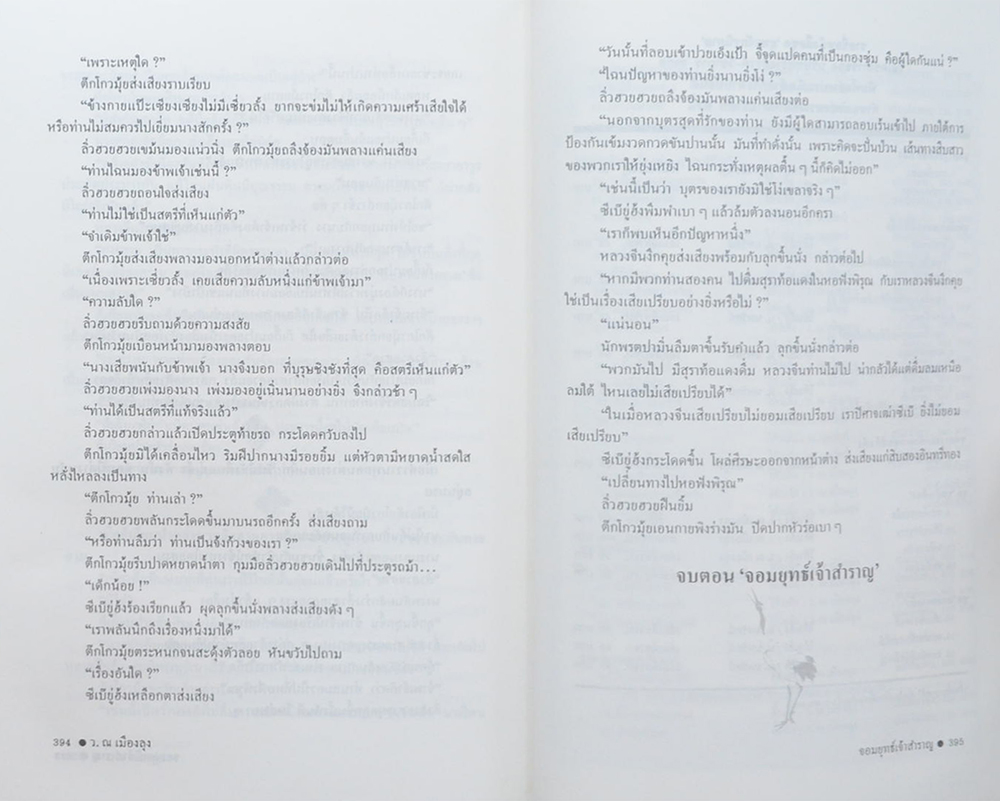 “เพราะเหตุใด ?”
ตึกโกวมุ้ยส่งเสียงราบเรียบ
“ข้างกายแป๊ะเซียงเซียงไม่มีเซี่ยวลั้ง ยากจะข่มไม่ให้เกิดความเศร้าเสียใจได้
หรือท่านไม่สมควรไปเยี่ยมนางสักครั้ง ?”
ลิ่วฮวยฮวยเขม้นมองแน่วนิ่ง ตึกโกวมุ้ยถลึงจ้องมันพลางแค่นเสียง
“ท่านไฉนมองข้าพเจ้าเช่นนี้ ?”
ลิ่วฮวยฮวยถอนใจส่งเสียง
“ท่านไม่ใช่เป็นสตรีที่เห็นแก่ตัว”
“จำเดิมข้าพเจ้าใช่”
ตึกโกวมุ้ยส่งเสียงพลางมองนอกหน้าต่างแล้วกล่าวต่อ
“เนื่องเพราะเซี่ยวลั้ง เคยเสียความลับหนึ่งแก่ข้าพเจ้ามา”
“ความลับใด ?”
ลิ่วฮวยฮวยรีบถามด้วยความสงสัย
ตึกโกวมุ้ยเบือนหน้ามามองพลางตอบ
“นางเสียพนันกับข้าพเจ้า นางจึงบอก ที่บุรุษชิงชังที่สุด คือสตรีเห็นแก่ตัว”
ลิ่วฮวยฮวยเพ่งมองนาง เพ่งมองอยู่เนิ่นนานอย่างยิ่ง จึงกล่าวช้า ๆ
“ท่านได้เป็นสตรีที่แท้จริงแล้ว”
ลิ่วฮวยฮวยกล่าวแล้วเปิดประตูท้ายรถ กระโดดควับลงไป
ตึกโกวมุ้ยมิได้เคลื่อนไหว ริมฝีปากนางมีรอยยิ้ม แต่หัวตามีหยาดน้ำสดใส
หลั่งไหลลงเป็นทาง
“ตึกโกวมุ้ย ท่านเล่า ?”
ลิ่วฮวยฮวยพลันกระโดดขึ้นมาบนรถอีกครั้ง ส่งเสียงถาม
“หรือท่านลืมว่า ท่านเป็นจึงก้วงของเรา ?”
ตึกโกวมุ้ยรีบปาดหยาดน้ำตา กุมมือลิ่วฮวยฮวยเดินไปที่ประตูรถม้า...
“เด็กน้อย !”
ซีเบ๊ยู่ฮั้งร้องเรียกแล้ว ผุดลุกขึ้นนั่งพลางส่งเสียงดัง ๆ
“เราพลันนึกถึงเรื่องหนึ่งมาได้”
ตึกโกวมุ้ยตระหนกจนสะดุ้งตัวลอย หันขวับไปถาม
“เรื่องอันใด ?”
ซีเบ๊ยู่ฮั้งเหลือกตาส่งเสียง
394 ● ว. ณ เมืองลุง
“วันนั้นที่ลอบเข้าป่วยเอ็งเป้า จี้จุดแปดคนที่เป็นกองซุ่ม คือผู้ใดกันแน่ ?”
“ไฉนปัญหาของท่านยิ่งนานยิ่งโง่ ?”
ลิ่วฮวยฮวยถลึงจ้องมันพลางแค่นเสียงต่อ
“นอกจากบุตรสุดที่รักของท่าน ยังมีผู้ใดสามารถลอบเร้นเข้าไป ภายใต้การ
ป้องกันเข้มงวดกวดขันปานนั้น มันที่ทำดั่งนั้น เพราะคิดจะปั่นป่วน เส้นทางสืบสาว
ของพวกเราให้ยุ่งเหยิง ไฉนกระทั่งเหตุผลตื้น ๆ นี้ก็คิดไม่ออก”
“เช่นนี้เป็นว่า บุตรของเรายังมิใช่โง่เขลาจริง ๆ”
ซีเบ๊ยู่ฮั้งพึมพำเบา ๆ แล้วล้มตัวลงนอนอีกครา
“เราก็พบเห็นอีกปัญหาหนึ่ง”
หลวงจีนงึกคุยส่งเสียงพร้อมกับลุกขึ้นนั่ง กล่าวต่อไป
“หากมีพวกท่านสองคน ไปดื่มสุราท้อแดงในหอฟังพิรุณ กับเราหลวงจีนงึกคุย
ใช่เป็นเรื่องเสียเปรียบอย่างยิ่งหรือไม่ ?”
“แน่นอน”
นักพรตปามิ่นลืมตาขึ้นรับคำแล้ว ลุกขึ้นนั่งกล่าวต่อ
“พวกมันไป มีสุราท้อแดงดื่ม หลวงจีนท่านไม่ไป น่ากลัวได้แต่ดื่มลมเหนือ
ลมใต้ ไหนเลยไม่เสียเปรียบได้”
“ในเมื่อหลวงจีนเสียเปรียบไม่ยอมเสียเปรียบ เราปีศาจเฒ่าซีเบ๊ ยิ่งไม่ยอม
เสียเปรียบ”
ซีเบ๊ยู่ฮั้งกระโดดขึ้น โผล่ศีรษะออกจากหน้าต่าง ส่งเสียงแก่สิบสองอินทรีทอง
“เปลี่ยนทางไปหอฟังพิรุณ”
ลิ่วฮวยฮวยฝืนยิ้ม
ตึกโกวมุ้ยเอนกายพิงร่างมัน ปิดปากหัวร่อเบา ๆ
จบตอน ‘จอมยุทธ์เจ้าสำราญ’
จอมยุทธ์เจ้าสำราญ ● 395